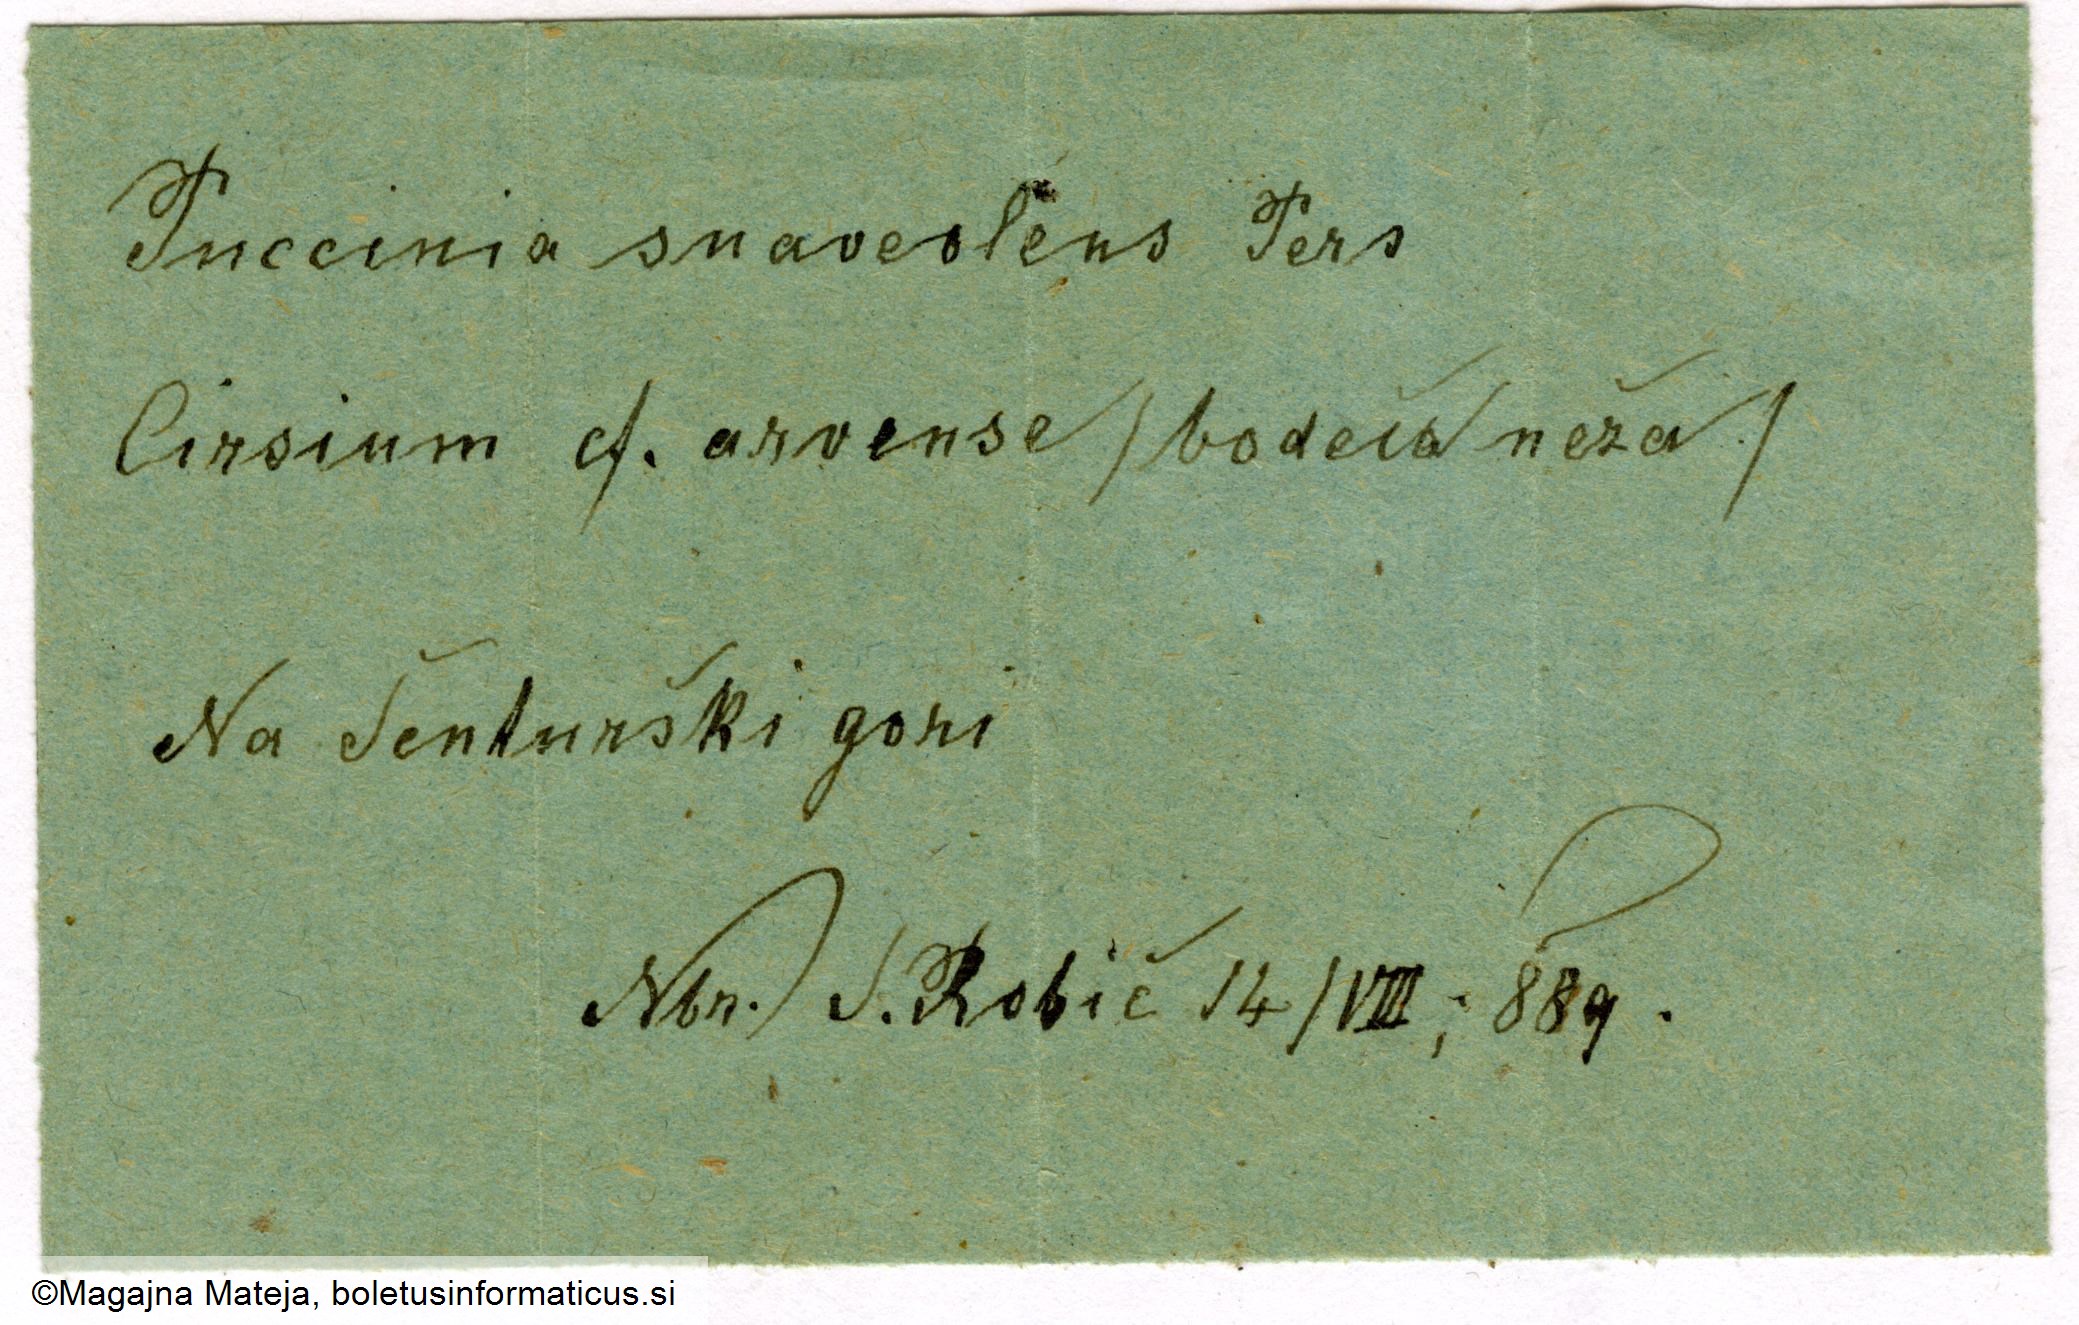 Puccinia suaveolens Pers
Cirsium cf. arvense /bodeča neža/
Na Šenturški gori
Nbr. S. Robič 14/VIII, 889.
©Magajna Mateja, boletusinformaticus.si